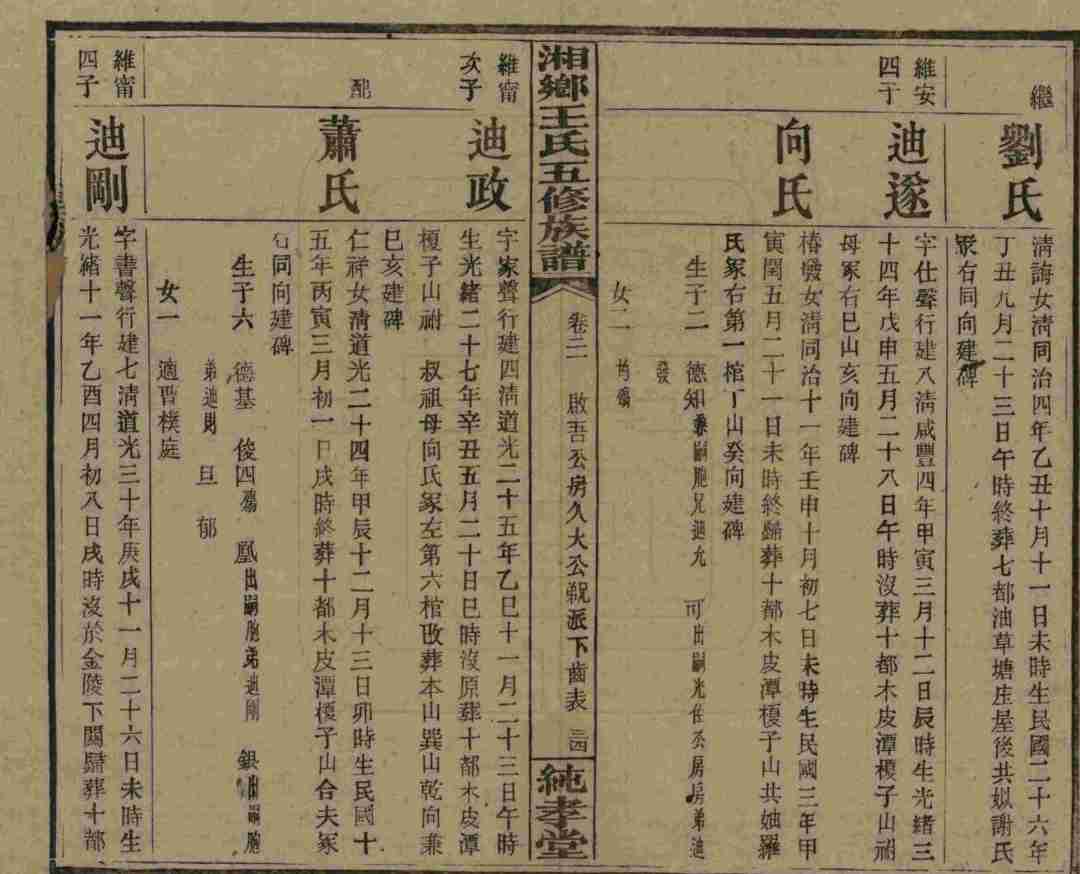 繼
劉氏
清誨女清同治四年乙丑十月十一日未時生民國二十六年
丁丑九月二十三日午時終葬七都油草塘庄屋後共姒謝氏
冢右同向建碑
維安
四子
迪遂
字仕聲行建八清咸豐四年甲寅三月十二日辰時生光緒三
十四年戊申五月二十八日午時沒葬十都木皮潭榎子山祔
母冢右巳山亥向建碑
向氏
椿墩女清同治十一年壬申十月初七日未時生民國三年甲
寅閏五月二十一日未時終歸葬十都木皮潭榎子山共妯羅
氏冢右第一棺丁山癸向建碑
生子二 德知兼嗣胞兄迪九 可出嗣光佐公房房弟迪
發
女二 均殤
湘鄉王氏五修族譜
卷二 啟吾公房久大公貌派下齒表 三四
純孝堂
維甯
次子
迪政
字家聲行建四清道光二十五年乙巳十一月二十三日午時
生光緒二十七年辛丑五月二十日巳時沒原葬十都木皮潭
榎子山祔 叔祖母向氏冢左第六棺改葬本山巽山乾向兼
巳亥建碑
配
蕭氏
仁祥女清道光二十四年甲辰十二月十三日卯時生民國十
五年丙寅三月初一日戌時終葬十都木皮潭榎子山合夫冢
右同向建碑
生子六 德基 俊四殤 凰出嗣胞弟迪剛 銀出嗣胞
弟迪則 旦 郁
女一 適晋樸庭
維甯
四子
迪剛
字書聲行建七清道光三十年庚戌十一月二十六日未時生
光緒十一年乙酉四月初八日戌時沒於金陵下關歸葬十都